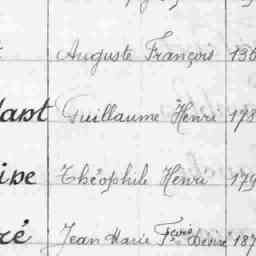 Auguste François 136
dant Guillaume Henri 178
ine Théophile Henri 179
ré Jean Marie Fçois Désiré 187